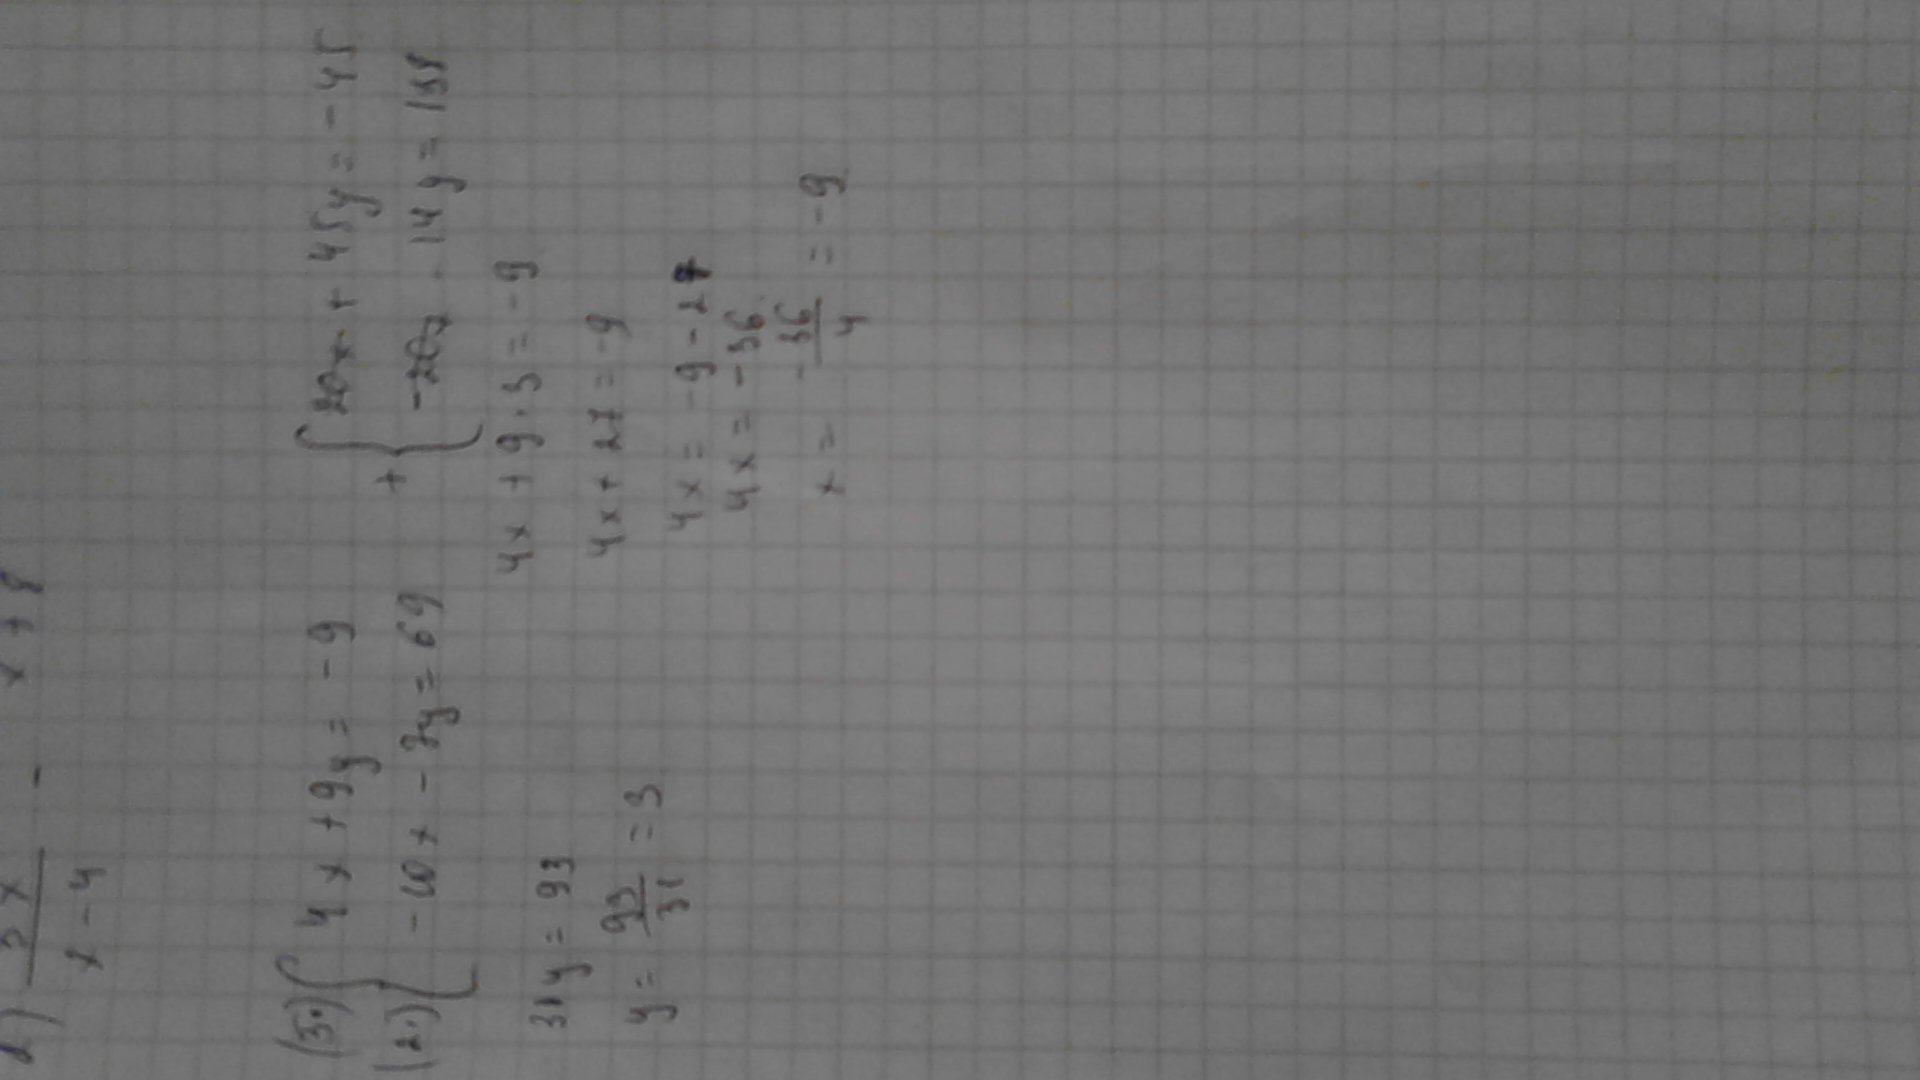 5x
x - 4
-
x + 8
(5·) { 4x + 9y = -9
(2·) { -10x - 7y = 69
+ { 20x + 45y = -45
-20x - 14y = 138
31y = 93
y = 93/31 = 3
4x + 9·3 = -9
4x + 27 = -9
4x = -9 - 27
4x = -36
x = -36/4 = -9